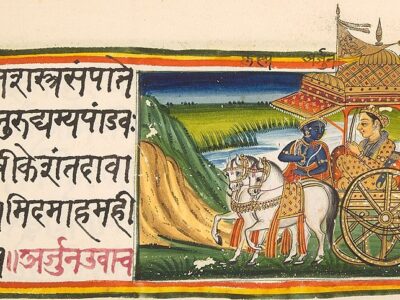 अर्जुन
शस्त्रसंपाते
नुरुद्यम्यपांडवः
केशंतदावा
मिदमाहमही
॥अर्जुनउवाच